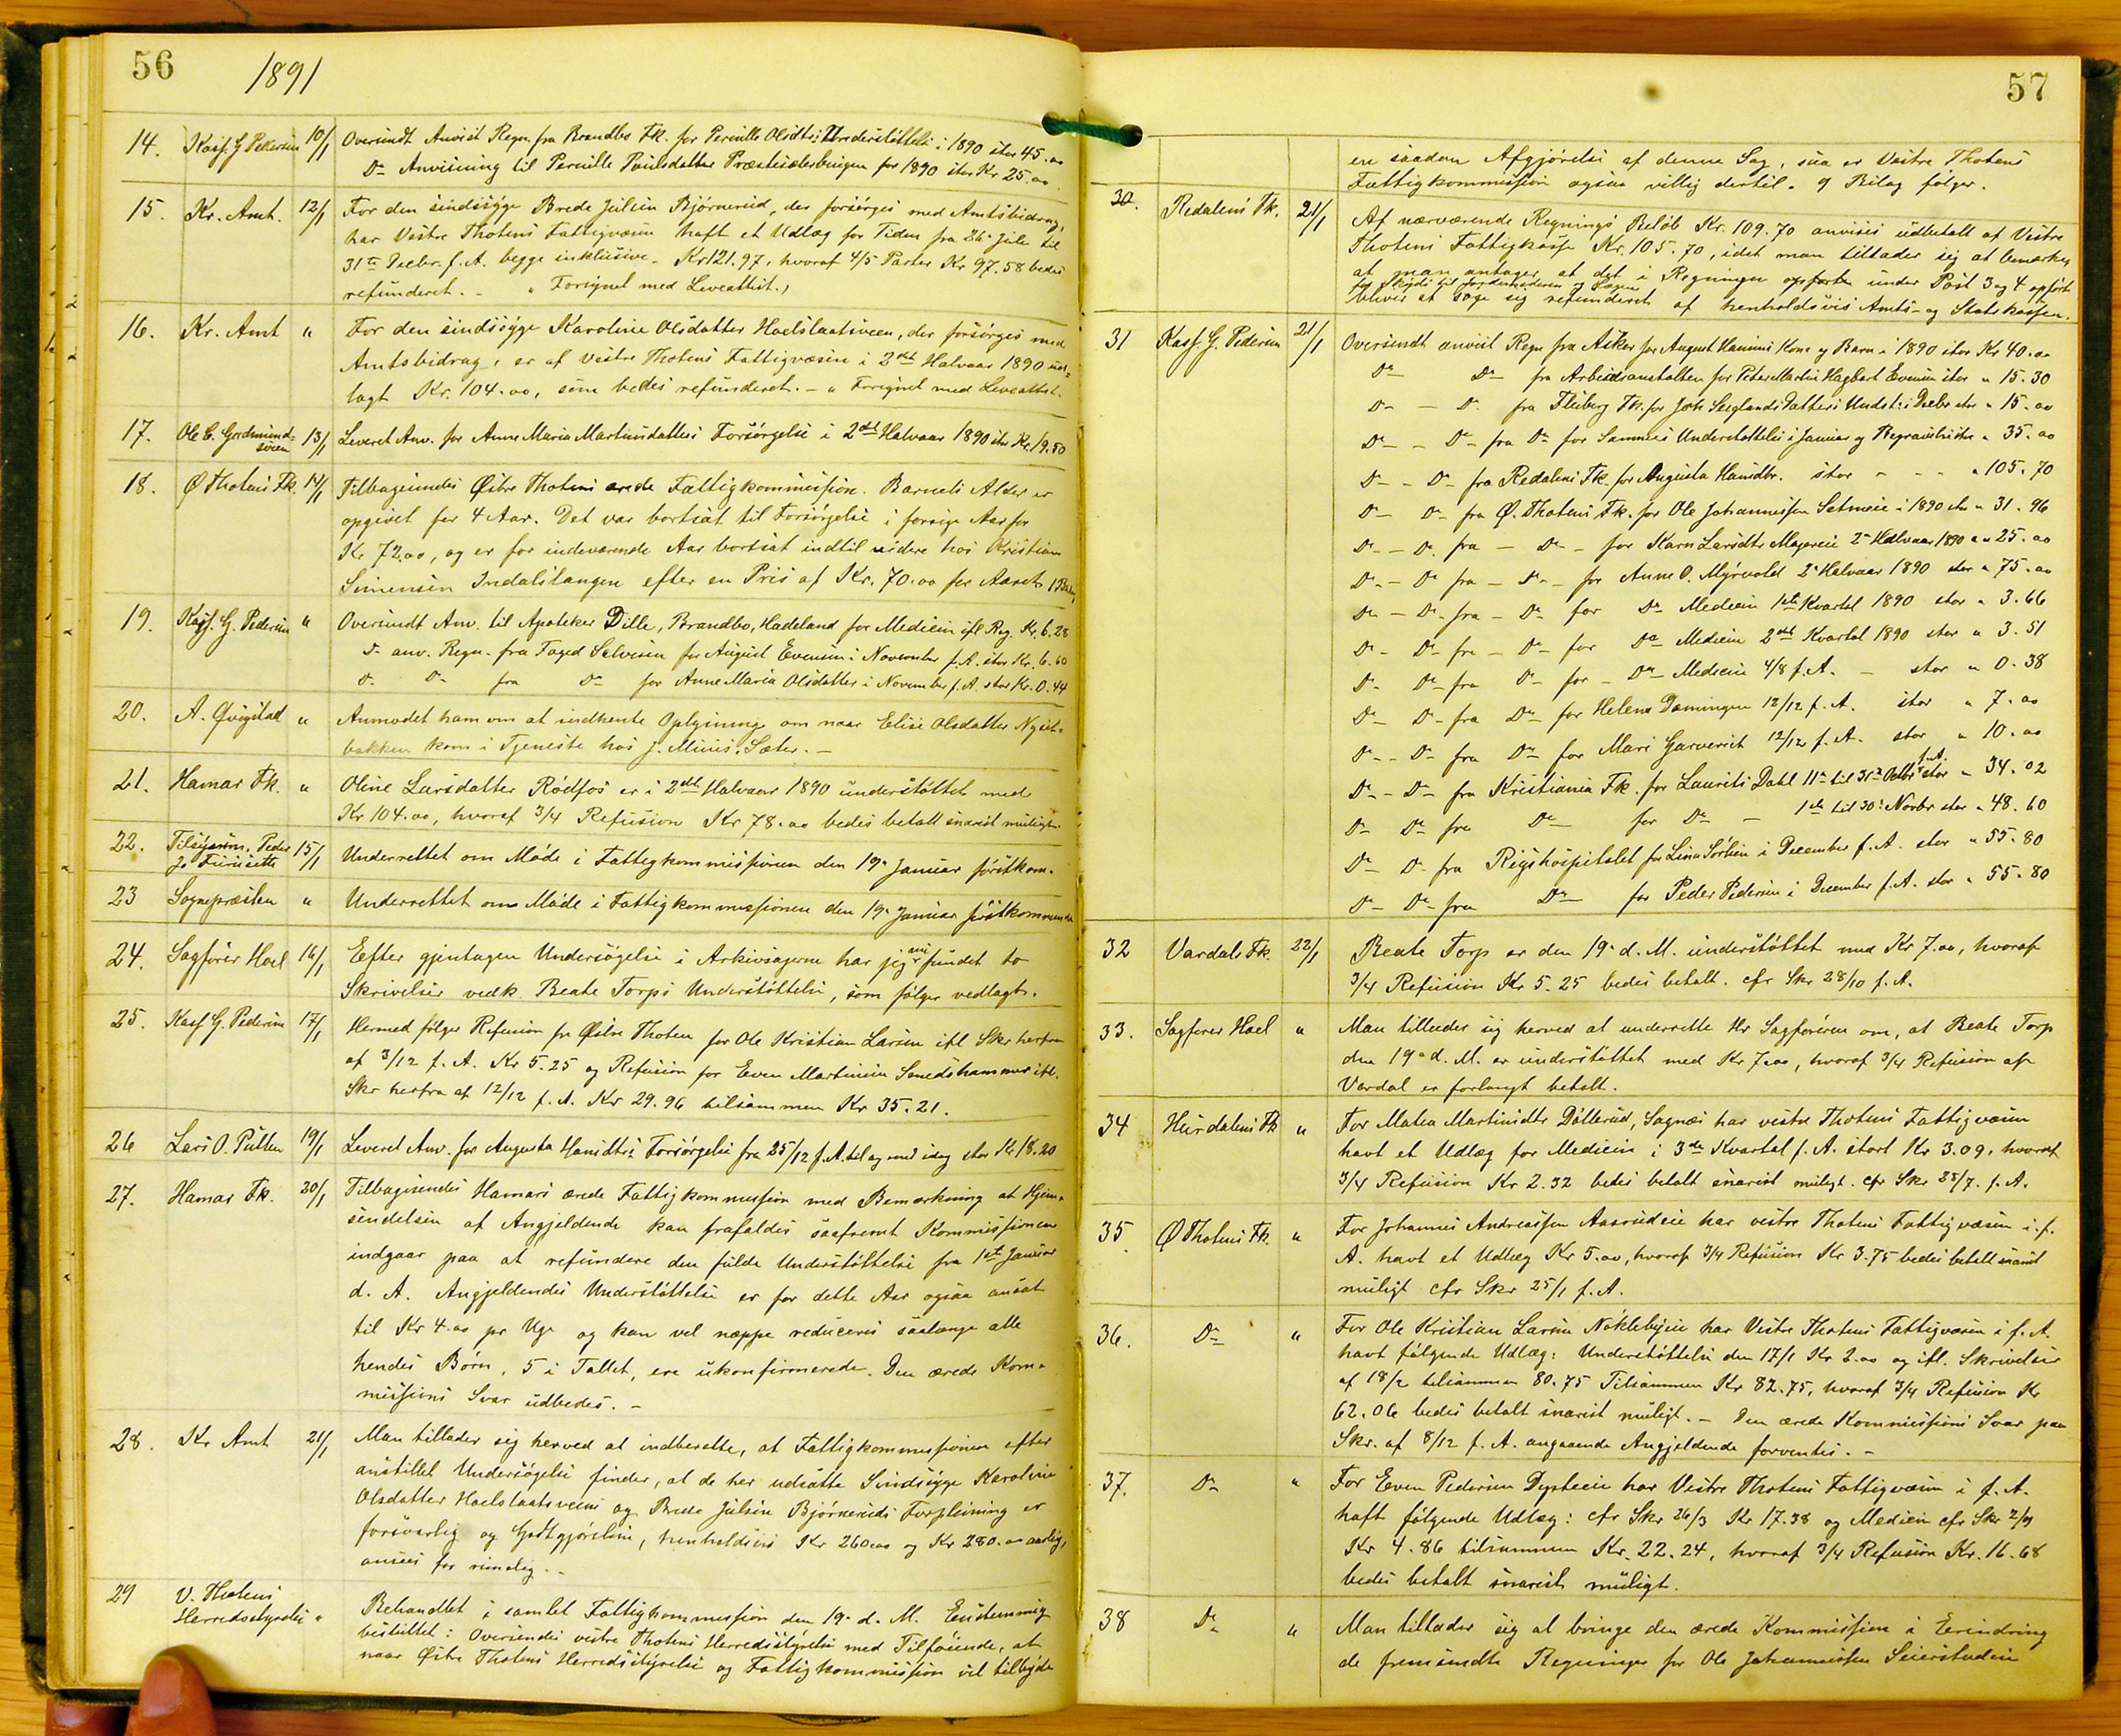 56 1891
14. Kass. G Pedersen 10/1 Oversendt Anvist Regn. fra Brandbo Fk. for Pernille Olsdtrs Understøttelse i 1890 stor 45.00
Do Anvisning til Pernille Poulsdatter Præstesæterbruget for 1890 stor Kr 25.00.
15. Kr. Amt. 12/1 For den sindssyge Brede Julsen Bjørnerud, der forsørges med Amtsbidrag,
har Vestre Thotens Fattigvæsen haft et Udlæg for Tiden fra 26de Juli til
31te Decbr. f. A. begge inklusive. Kr 121.97, hvoraf 4/5 Parter Kr 97.58 bedes
refunderet. - " Foreignet med Leveattest.,
16. Kr. Amt " For den sindssyge Karoline Olsdatter Hoelslaatsveen, der forsørges med
Amtsbidrag, er af vestre Thotens Fattigvæsen i 2det Halvaar 1890 ud-
lagt Kr. 104.00, som bedes refunderet. - " Foreignet med Leveattest.
17. Ole C. Gudmund-
sveen 13/1 Leveret Anv. for Anne Maria Martinsdatters Forsørgelse i 2det Halvaar 1890 stor Kr. 19.50
18. Ø Thotens Fk. 14/1 Tilbagesendes Østre Thotens ærede Fattigkommission. Barnets Alder er
opgivet for 4 Aar. Det var bortsat til Forsørgelse i forrige Aar for
Kr 72.00, og er for indeværende Aar bortsat indtil videre hos Kristian
Simensen Indalstangen efter en Pris af Kr. 70.00 for Aaret. 1 Bilag
19. Kass. G. Pedersen " Oversendt Anv. til Apoteker Dille, Brandbo, Hadeland for Medicin ifl Reg. Kr. 6.28
Do anv. Regn. fra Faged Selvesen for August Evensen i November f. A. stor Kr. 6.60
Do Do fra Do for Anne Maria Olsdatter i November f. A. stor Kr. 0.44
20. A. Qvigstad " Anmodet ham om at indhente Oplysninge om naar Elise Olsdatter Nyset-
bakken kom i Tjeneste hos J. Miiris. Sæter. -
21. Hamar Fk. " Oline Larsdatter Rødfos er i 2det Halvaar 1890 understøttet med
Kr 104.00, hvoraf 3/4 Refusion Kr 78.00 bedes betalt snarest muligt.
22. Tilsynsm. Peder
Jo Furuseth 15/1 Underrettet om Møde i Fattigkommissionen den 19de Januar førstkom.
23 Sognepræsten " Underrettet om Møde i Fattigkommissionen den 19de Januar førstkommende
24. Sagfører Hoel 16/1 Efter gjentagen Undersøgelse i Arkivsagerne har jeg nu fundet to
Skrivelser vedk. Beate Torps Understøttelse, som følger vedlagt.
25. Kass G. Pedersen 17/1 Hermed følger Refusion fra Østre Thoten for Ole Kristian Larsen ifl Skr herfra
af 3/12 f. A. Kr 5.25 og Refusion for Even Martinsen Smedshammer ifl.
Skr herfra af 12/12 f. A. Kr 29.96 tilsammen Kr 35.21.
26 Lars O. Putten 19/1 Leveret Anv. for Augusta Hansdtrs Forsørgelse fra 25/12 f. A. til og med idag stor Kr 18.20
27. Hamar Fk. 20/1 Tilbagesendes Hamars ærede Fattigkommission med Bemærkning at Hjem-
sendelsen af Angjeldende kan frafaldes saafremt Kommissionen
indgaar paa at refundere den fulde Understøttelse fra 1ste Januar
d. A. Angjeldendes Understøttelse er for dette Aar ogsaa ansat
til Kr 4.00 pr Uge og kan vel næppe reduceres saalænge alle
hendes Børn, 5 i Tallet, ere ukonfirmerede. Den ærede Kom-
missions Svar udbedes. -
28. Kr Amt 21/1 Man tillader sig herved at indberette, at Fattigkommissionen efter
anstillet Undersøgelse finder, at de her udsatte Sindssyge Karoline
Olsdatter Hoelslaatsveens og Brede Julsen Bjørneruds Forpleining er
forsvarlig og Godtgjørelsen, henholdsvis Kr 260.00 og Kr 280.00 aarlig,
ansees for rimelig. -
29 V. Thotens
Herredsstyrelse " Behandlet i samlet Fattigkommission den 19de d. M. Enstemmig
besluttet: Oversendes vestre Thotens Herredsstyrelse med Tilføiende, at
naar Østre Thotens Herredsstyrelse og Fattigkommission vil tilbyde
57
en saadan Afgjørelse af denne Sag, saa er Vestre Thotens
Fattigkommission ogsaa villig dertil. 9 Bilag følger.
30. Redalens Fk. 21/1 Af nærværende Regnings Beløb Kr. 109.70 anvises udbetalt af Vestre
Thotens Fattigkasse Kr. 105.70, idet man tillader sig at bemærke,
at man antager at det i Regningen opførte under Post 3 og 4 opførte
for Skyds til Jordemoderen og Lægen
bliver at søge sig refunderet af henholdsvis Amts- og Statskassen.
31 Kass. G. Pedersen 21/1 Oversendt anvist Regn fra Asker for August Hansens Kone og Barn i 1890 stor Kr 40.00
Do Do fra Arbeidsanstalten for Peter Martin Hagbart Evensen stor " 15.30
Do - Do fra Fluberg Fk. for Joh. Seeglands Datters Undst. i Decbr stor " 15.00
Do - Do fra Do for Sammes Understøttelse i Januar og Begravelse stor " 35.00
Do - Do fra Redalens Fk. for Augusta Hansdtr. stor - - - " 105.70
Do Do fra Ø. Thotens Fk. for Ole Johannessen Setmeie i 1890 stor " 31.96
Do - Do fra - Do - for Karn Larsdtr Magereie 2det Halvaar 1890 " " 25.00
Do - Do fra - Do - for Anne O. Myrvold 2det Halvaar 1890 stor " 75.00
Do - Do fra - Do for Do Medicin 1ste Kvartal 1890 stor " 3.66
Do - Do fra - Do for Do Medicin 2det Kvartal 1890 stor " 3.51
Do Do fra Do for - Do Medicin 4/8 f. A. - stor " 0.38
Do - Do fra Do for Helene Dæmingen 12/12 f. A. stor " 7.00
Do - Do fra Do for Mari Garveriet 12/12 f. A. stor " 10.00
Do - Do fra Kristiania Fk. for Laurits Dahl 11te til 31te Octbr f.A. stor " 34.02
Do Do fra Do for Do - 1ste til 30te Novbr stor " 48.60
Do Do fra Rigshospitalet for Lina Sørlien i December f. A. stor " 55.80
Do Do fra Do for Peder Pedersen i December f. A. stor " 55.80
32 Vardals Fk. 22/1 Beate Torp er den 19de d. M. understøttet med Kr 7.00, hvoraf
3/4 Refusion Kr 5.25 bedes betalt. cfr Skr 28/10 f. A.
33. Sagfører Hoel " Man tillader sig herved at underrette Hr Sagføreren om, at Beate Torp
den 19de d. M. er understøttet med Kr 7.00, hvoraf 3/4 Refusion af
Vardal er forlangt betalt.
34 Hurdalens Fk " For Matea Martinsdtr Døllerud, Sognæs har vestre Thotens Fattigvæsen
havt et Udlæg for Medicin i 3die Kvartal f. A. stort Kr 3.09, hvoraf
3/4 Refusion Kr 2.32 bedes betalt snarest muligt. cfr Skr 25/7. f. A.
35. Ø Thotens Fk. " For Johannes Andreassen Aasrudeie har vestre Thotens Fattigvæsen i f.
A. havt et Udlæg Kr 5.00, hvoraf 3/4 Refusion Kr 3.75 bedes betalt snarest
muligt cfr Skr 25/1 f. A.
36. Do " For Ole Kristian Larsen Nøklebyeie har Vestre Thotens Fattigvæsen i f. A.
havt følgende Udlæg: Understøttelse den 17/1 Kr 2.00 og ifl. Skrivelser
af 18/2 tilsammen 80.75 Tilsammen Kr 82.75, hvoraf 3/4 Refusion Kr
62.06 bedes betalt snarest muligt. - Den ærede Kommissions Svar paa
Skr. af 8/12 f. A. angaaende Angjeldende forventes. -
37. Do " For Even Pedersen Dysteeie har Vestre Thotens Fattigvæsen i f. A.
haft følgende Udlæg: cfr Skr 26/3 Kr 17.38 og Medicin cfr Skr
Kr 4.86 tilsammen Kr. 22.24, hvoraf 3/4 Refusion Kr. 16.68
bedes betalt snarest muligt.
38 Do " Man tillader sig at bringe den ærede Kommission i Erindring
de fremsendte Regninger for Ole Johannessen Seierstadeie